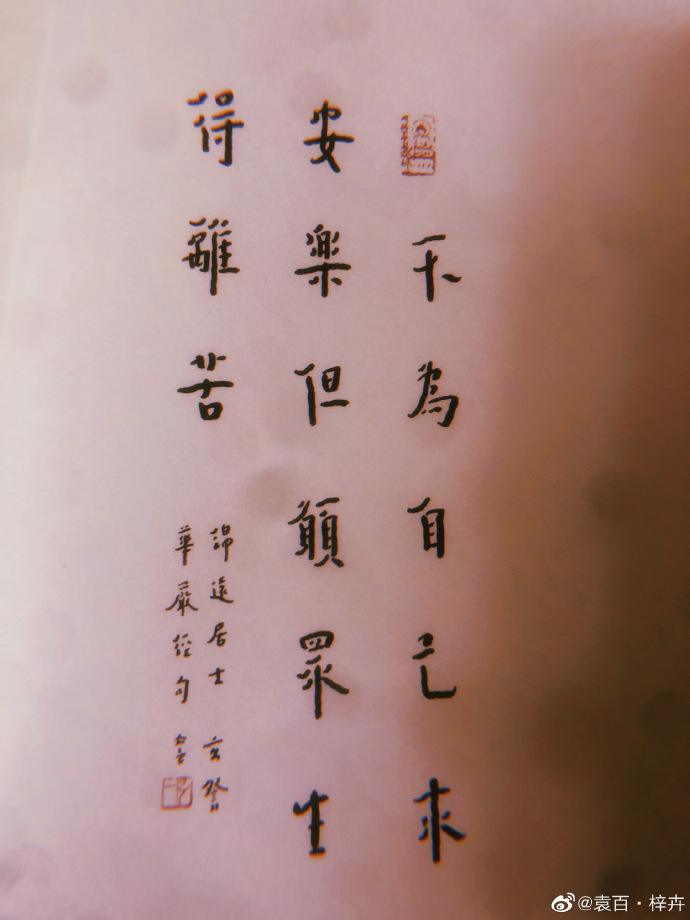 不為自己求
安樂但願眾生
得離苦
綿遠居士 玄瑩
華嚴經句 音
@袁百·梓卉